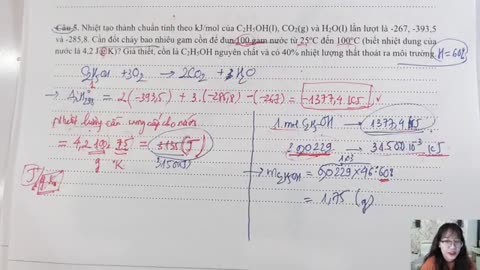 Câu 5. Nhiệt tạo thành chuẩn tính theo kJ/mol của C₂H₅OH(l), CO₂(g) và H₂O(l) lần lượt là -267, -393,5
và -285,8. Cần đốt cháy bao nhiêu gam cồn để đun 100 gam nước từ 25°C đến 100°C (biết nhiệt dung của
nước là 4,2 J/g.K)? Giả thiết cồn là C₂H₅OH nguyên chất và có 40% nhiệt lượng thất thoát ra môi trường. H = 60%
C₂H₅OH + 3O₂ → 2CO₂ + 3H₂O
= 2(-393,5) + 3.(-285,8) - (-267) = -1377,4 kJ
Nhiệt lượng cần cung cấp cho nước
= 4,2.
g K
31500J
J/g.K
1 mol C₂H₅OH → 1377,4 kJ
0,0229 → 31500.10⁻³ kJ
→ mC₂H₅OH = 0,0229 × 46 : 60%
= 1,75 (g)